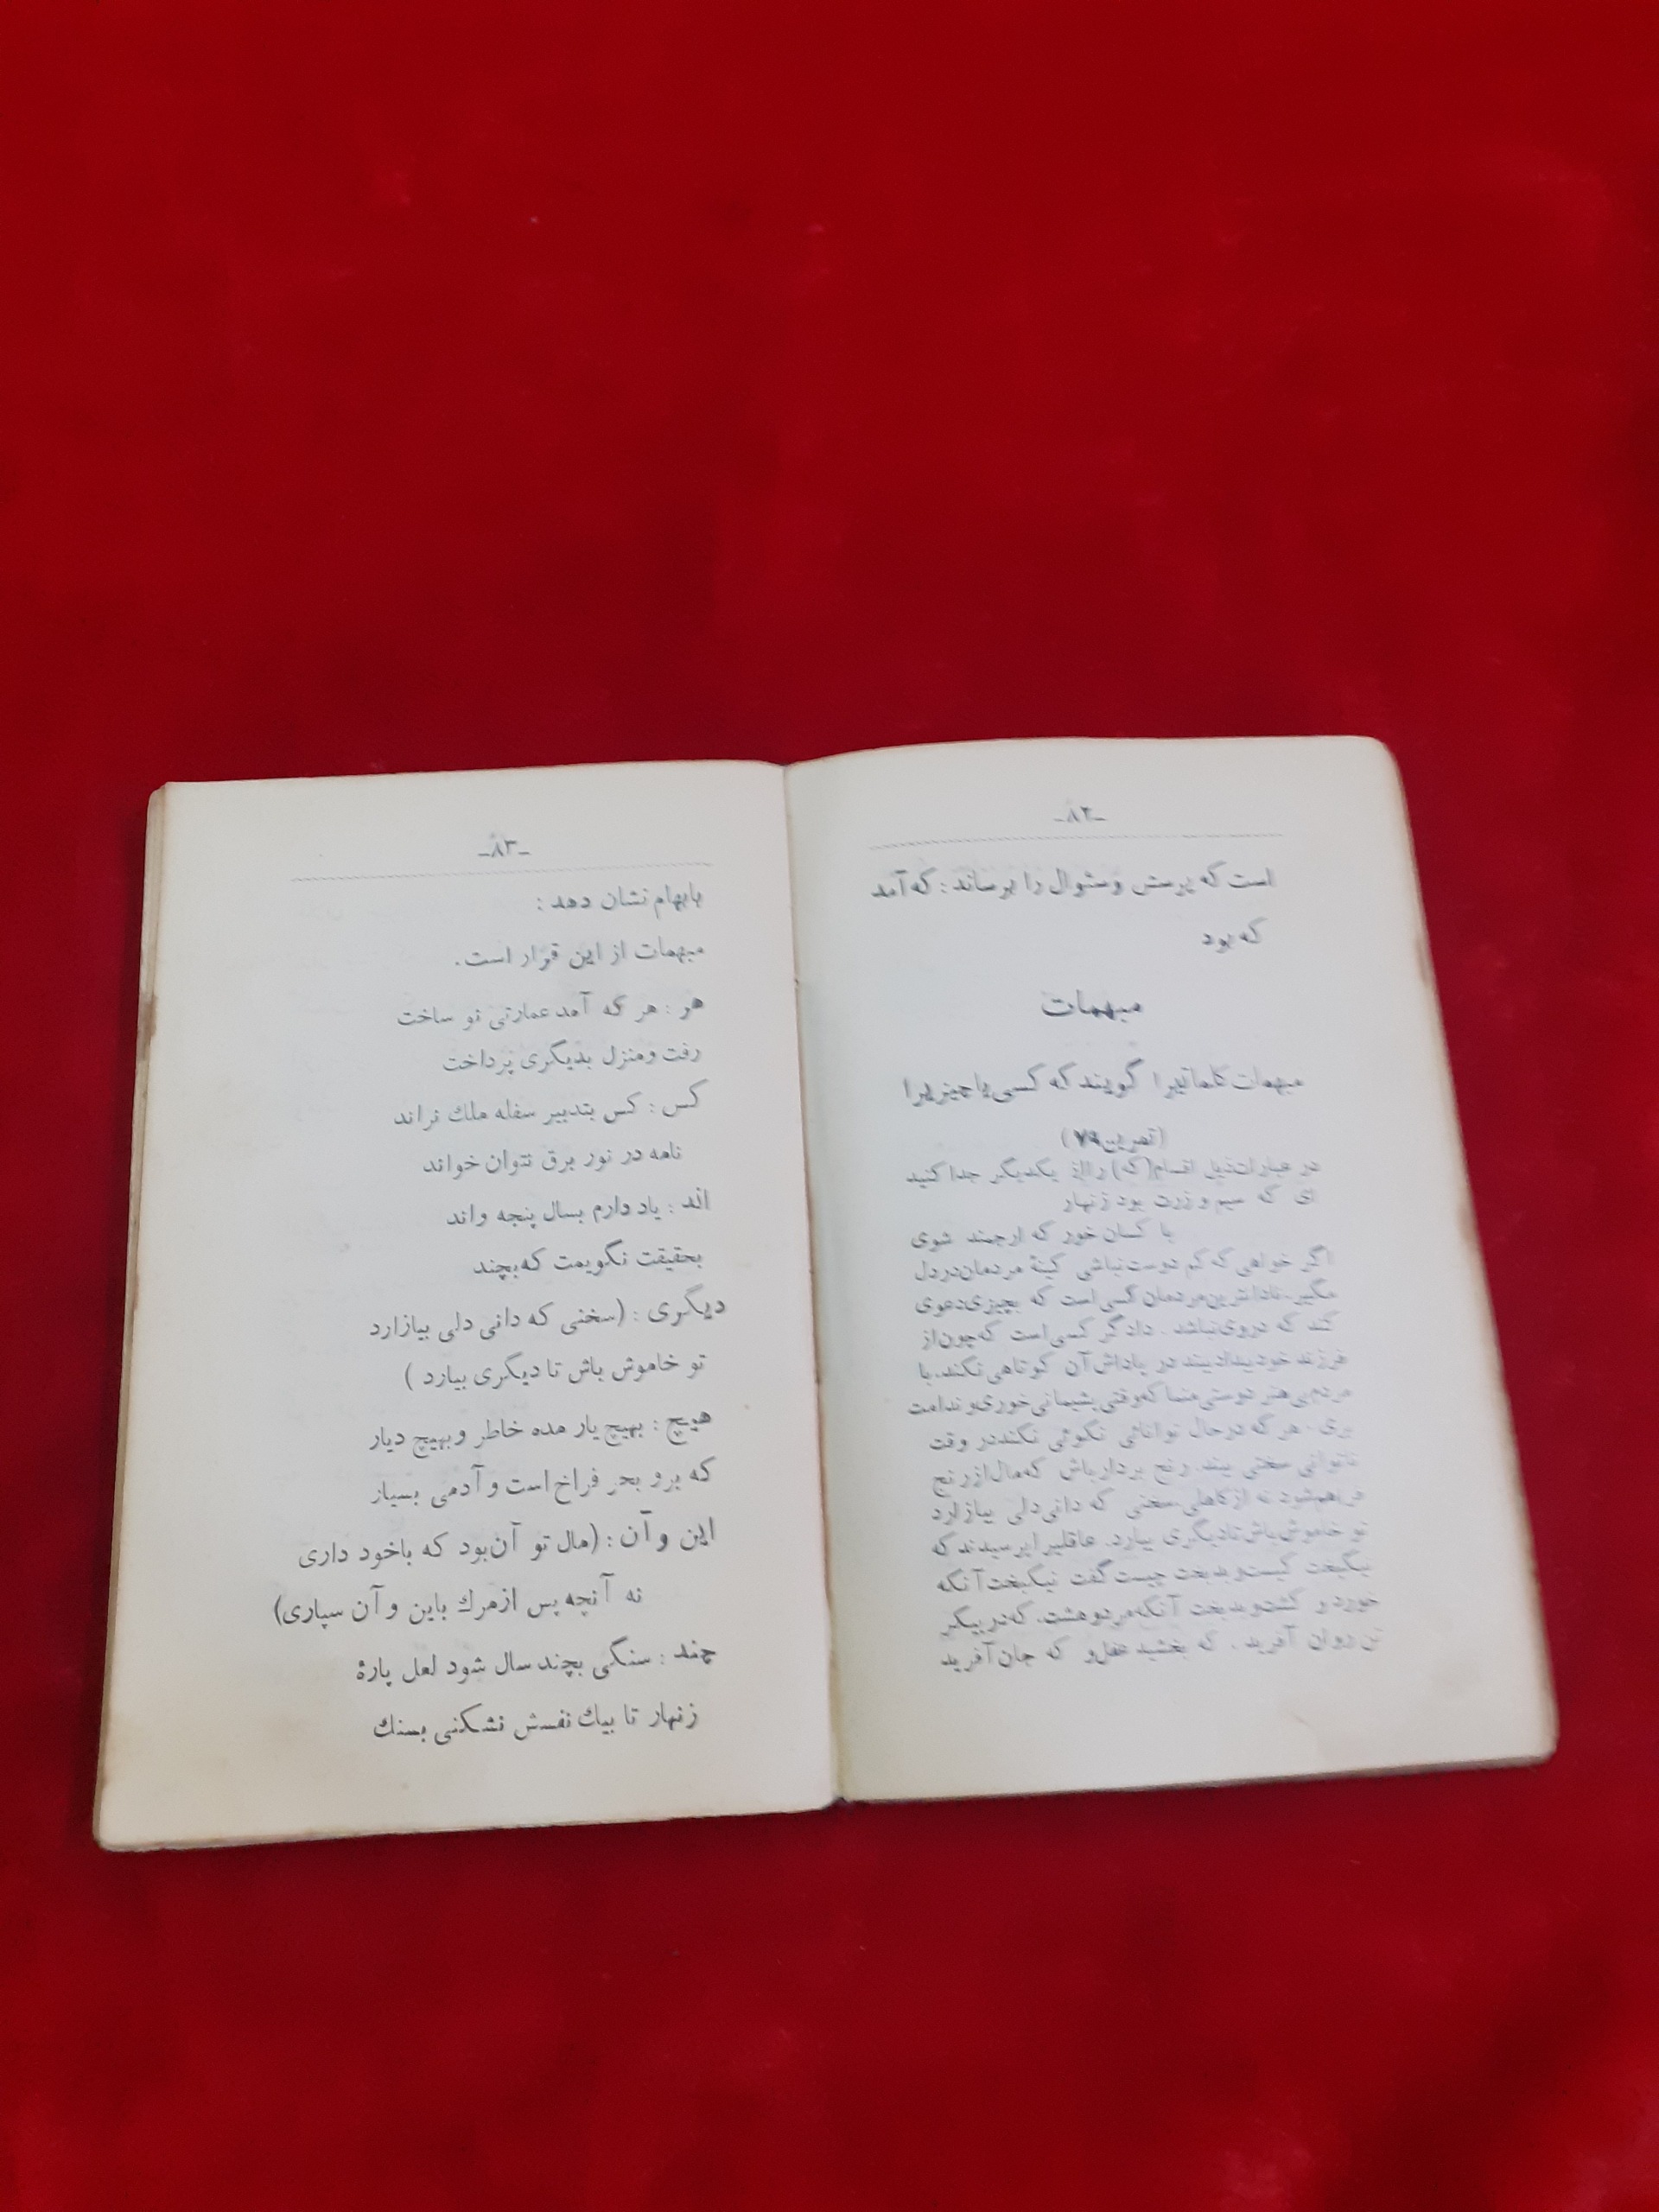 -۸۲-
است که پرسش وسئوال را برساند : که آمد
که بود
مبهمات
مبهمات کلماتیرا گویند که کسی یا چیزیرا
(تمرین ۷۹)
در عبارات ذیل اقسام (که) را از یکدیگر جدا کنید
ای که سیم و زرت بود زنهار
با کسان خور که ارجمند شوی
اگر خواهی که کم دوست نباشی کینهٔ مردمان در دل
مگیر. نادانترین مردمان کسی است که بچیزی دعوی
کند که دروی نباشد . دادگر کسی است که چون از
فرزند خود بیداد بیند در پاداش آن کوتاهی نکند. با
مردم بی هنر دوستی منما که وقتی پشیمانی خوری و ندامت
بری . هر که در حال توانائی نکوئی نکند در وقت
ناتوانی سختی بیند. رنج بردار باش که مال از رنج
فراهم شود نه از کاهلی. سخنی که دانی دلی بیازارد
تو خاموش باش تا دیگری بیارد. عاقلیرا پرسیدند که
نیکبخت کیست و بدبخت چیست گفت نیکبخت آنکه
خورد و کشت و بدبخت آنکه مرد و هشت. که در پیکر
تن روان آفرید . که بخشید عقل و که جان آفرید
-۸۳-
بابهام نشان دهد :
مبهمات از این قرار است.
هر : هر که آمد عمارتی نو ساخت
رفت ومنزل بدیگری پرداخت
کس : کس بتدبیر سفله ملك نراند
نامه در نور برق نتوان خواند
اند : یاد دارم بسال پنجه واند
بحقیقت نگویمت که بچند
دیگری : (سخنی که دانی دلی بیازارد
تو خاموش باش تا دیگری بیارد )
هیچ : بهیچ یار مده خاطر و بهیچ دیار
که برو بحر فراخ است و آدمی بسیار
این و آن : (مال تو آن بود که باخود داری
نه آنچه پس از مرك باین و آن سپاری)
چند : سنگی بچند سال شود لعل پارهٔ
زنهار تا بیك نفسش نشکنی بسنك